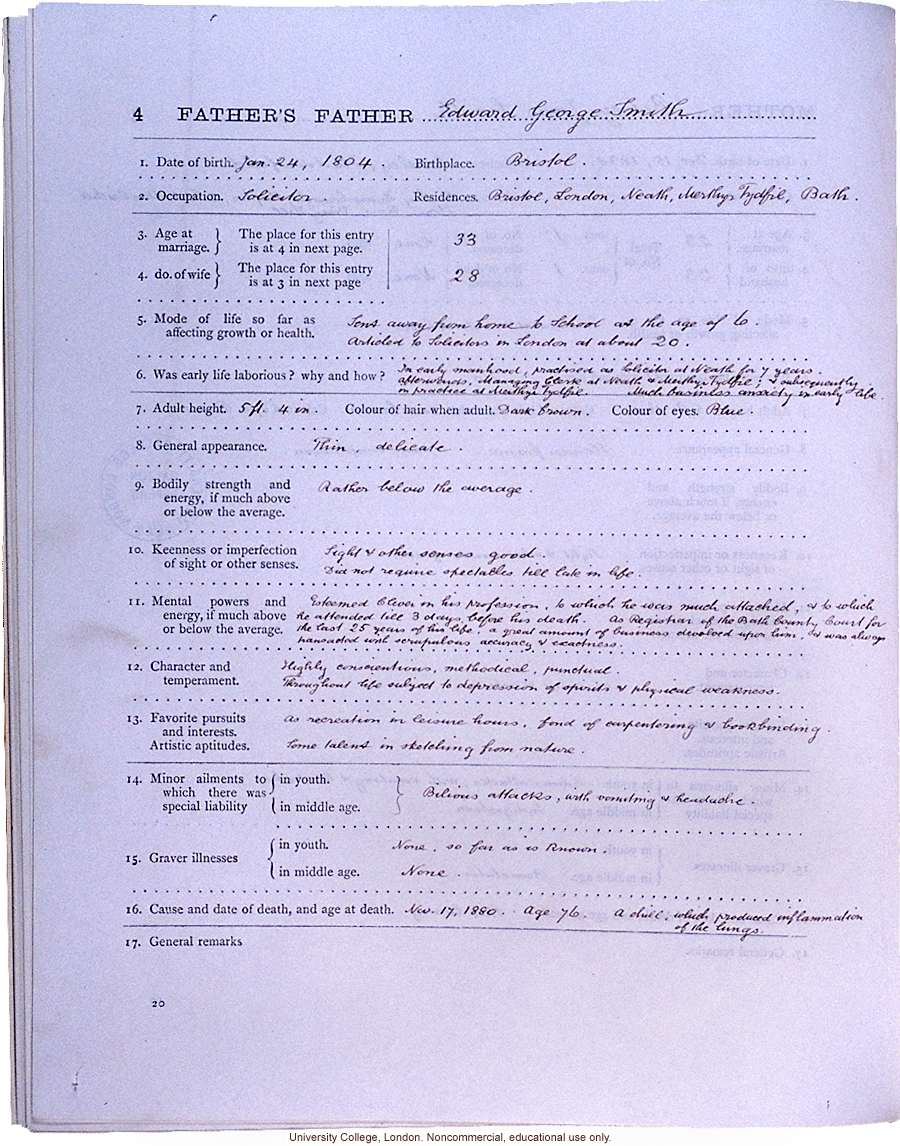 4 FATHER'S FATHER Edward George Smith
1. Date of birth. Jan. 24, 1804. Birthplace. Bristol.
2. Occupation. Solicitor Residences. Bristol, London, Neath, Merthyr Tydfil, Bath.
3. Age at marriage. } The place for this entry is at 4 in next page. 33
4. do. of wife } The place for this entry is at 3 in next page 28
5. Mode of life so far as affecting growth or health. Sent away from home to School at the age of 6.
Articled to Solicitors in London at about 20.
6. Was early life laborious? why and how? In early manhood, practised as Solicitor at Neath for 7 years.
afterwards, Managing Clerk at Neath & Merthyr Tydfil; & subsequently
in practice at Merthyr Tydfil. Much business anxiety in early life.
7. Adult height. 5 ft. 4 in. Colour of hair when adult. Dark brown. Colour of eyes. Blue.
8. General appearance. Thin, delicate.
9. Bodily strength and energy, if much above or below the average. Rather below the average.
10. Keenness or imperfection of sight or other senses. Sight & other senses good.
Did not require spectacles till late in life.
11. Mental powers and energy, if much above or below the average. Esteemed Clever in his profession, to which he was much attached, & to which
he attended till 3 days before his death. As Registrar of the Bath County Court for
the last 25 years of his life, a great amount of business devolved upon him, & was always
transacted with scrupulous accuracy & exactness.
12. Character and temperament. Highly conscientious, methodical, punctual.
Throughout life subject to depression of spirits & physical weakness.
13. Favorite pursuits and interests. As recreation in leisure hours, fond of carpentering & bookbinding.
Artistic aptitudes. Some talent in sketching from nature.
14. Minor ailments to which there was special liability { in youth. in middle age. } Bilious attacks, with vomiting & headache.
15. Graver illnesses { in youth. None, so far as is known.
in middle age. None.
16. Cause and date of death, and age at death. Nov. 17, 1880. Age 76. A chill, which produced inflammation
of the lungs.
17. General remarks
20
University College, London. Noncommercial, educational use only.